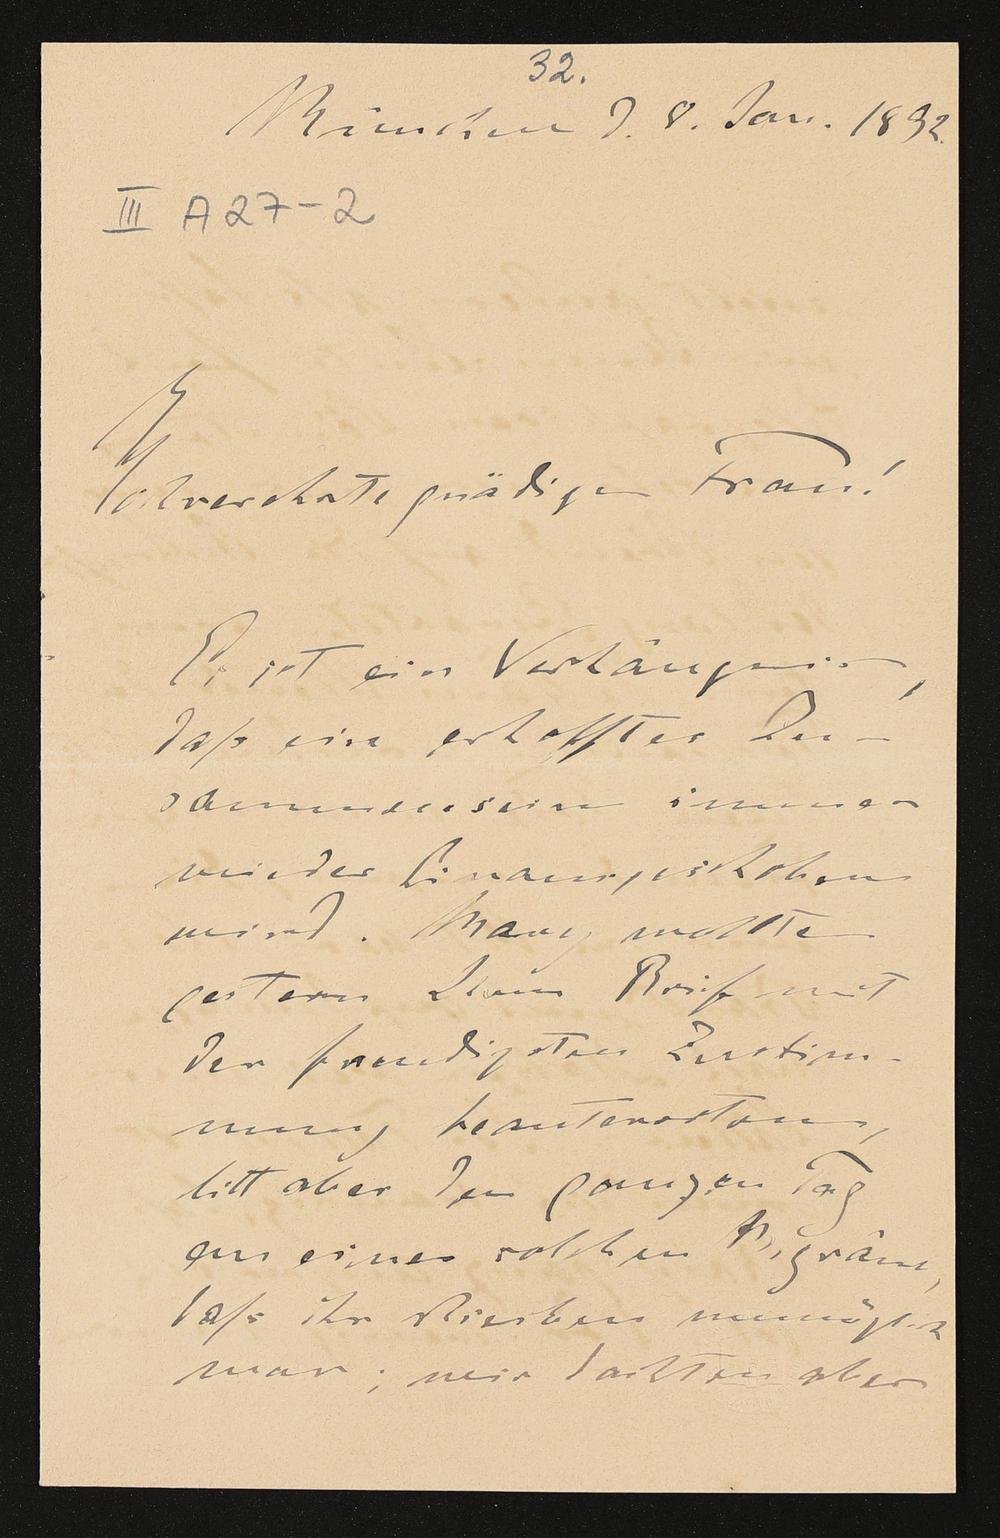 32.
München d. 8. Jan. 1892.
III A 27-2
Hochverehrte gnädige Frau!
Es ist ein Verhängniss,
daß ein erhofftes Zu-
sammensein immer
wieder hinausgeschoben
wird. Mary wollte
gestern Ihren Brief mit
der freudigsten Zustim-
mung beantworten,
litt aber den ganzen Tag
an einer solchen Migräne,
daß ihr Schreiben unmöglich
war; wir dachten aber